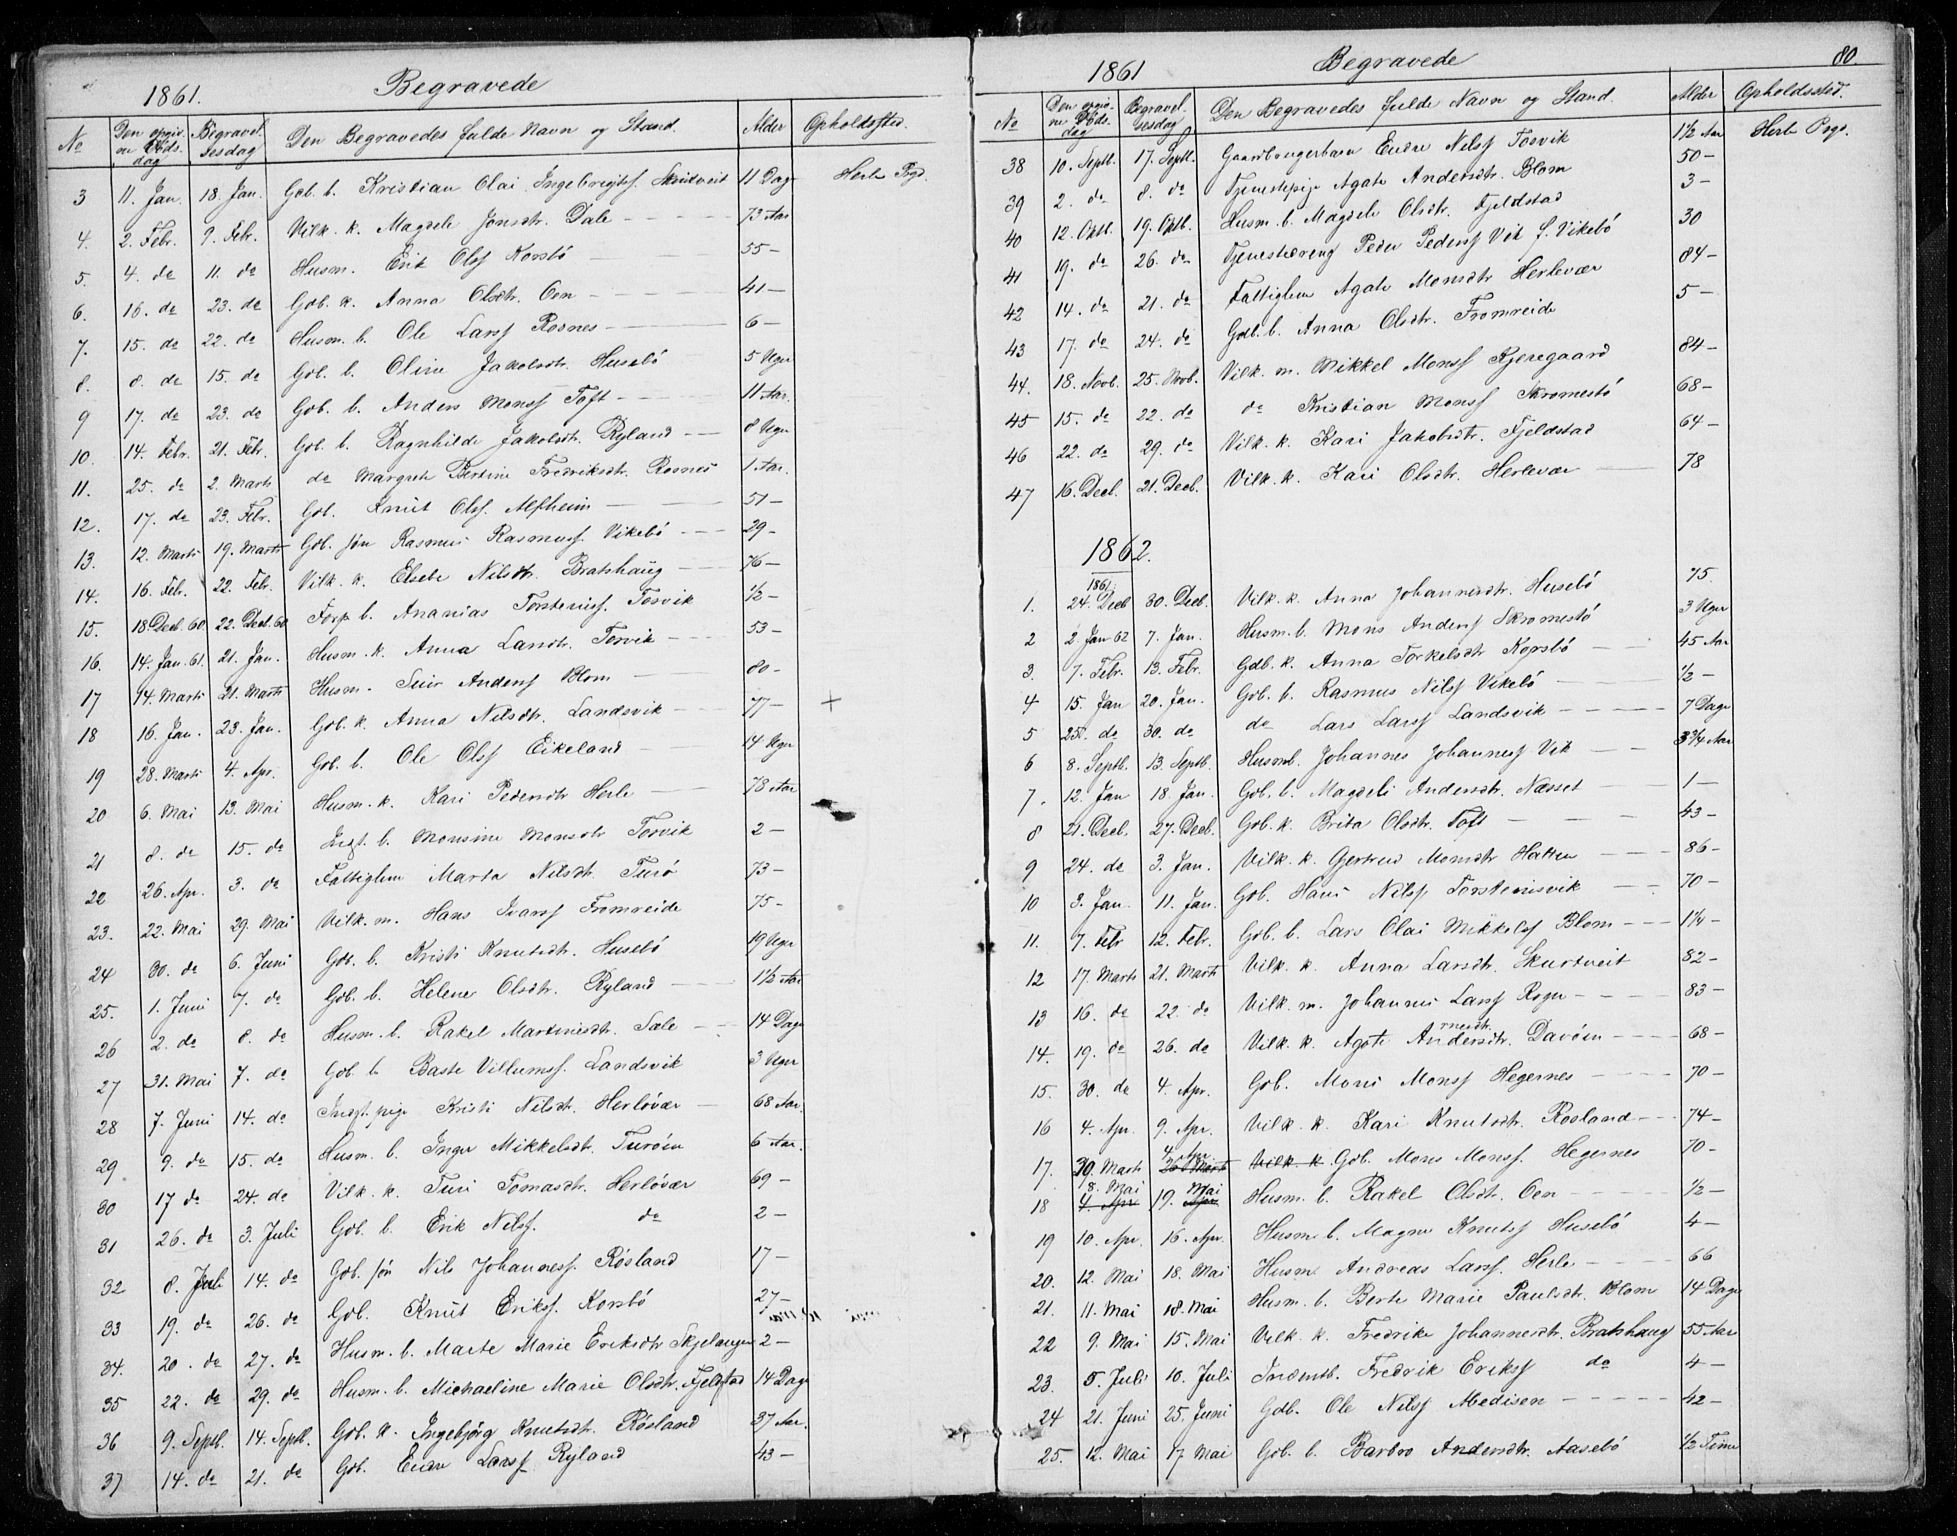 1861. Begravede
No Den opgivne Dødsdag Begravelsesdag Den Begravedes fulde Navn og Stand. Alder Opholdssted.
3 11. Jan. 18. Jan. Gdb. b. Kristian Olai Ingebrigtsf. Skurtveit 11 Dag Herle Prgd.
4. 2. Febr. 9. Febr. Vilk. k. Magdele Jonsdtr. Dale 73 Aar
5. 4. do 11. do Husm. Erik Olsf Korsbö 55 —
6. 16. do 23. do Gdb. k. Anna Olsdtr. Oen 41 —
7. 15. do 22. do Husm. b. Ole Larsf Rosnes 6 —
8. 8. do 15. do Gdb. b. Oline Jakobsdtr. Husebö 5 Uger
9 17. do 23. do Gdb. b. Anders Monsf Toft 11 Aar.
10. 14. Febr. 21. Febr. Gdb. b. Ragnhilde Jakobsdtr. Ryland 8 Uger
11. 25. do 2. Marts do Margrete Bertine Fredriksdtr. Rosnes 1 Aar.
12. 17. do 23. Febr. Gdb. Knut Olsf. Alfheim 51 —
13. 12. Marts 19. Marts Gdb. søn Rasmus Rasmusf. Vikebö 29 —
14. 16. Febr. 22. Febr. Vilk. k. Elsebe Nilsdtr. Bratshaug 76 —
15. 18. Decl. 60 22. Decl. 60 b. Ananias Torstensf. Tosvik 1/2 —
16. 14. Jan. 61. 21. Jan. Husm. k. Anna Larsdtr. Tosvik 53 —
17 14. Marts 21. Marts Husm. Andersf Blom 80 —
18 16. Jan. 23. Jan. Gdb. k. Anna Nilsdtr. Landsvik 77 — +
19 28. Marts 4. Apr. Gdb. b. Ole Olsf Eikeland 14 Uger
20 6. Mai 13. Mai Husm. k. Kari Pedersdtr Herle 78 Aar
21 8. do 15. do b. Monsine Monsdtr Tosvik 2 —
22 26. Apr. 3. do Fattiglem Marta Nilsdtr. Turö 73 —
23. 22. Mai 29. Mai Vilk. m. Hans Ivarsf Fromreide 75 —
24 30. do 6. Juni Gdb. b. Kristi Knutsdtr. Husebö 19 Uger
25. 1. Juni 7. do Gdb. b. Helene Olsdtr. Ryland 1 1/2 Aar
26 2. do 8. do Husm. b. Rakel Martinesdtr. Dale 14 Dage
27 31. Mai 7. do Gdb. b Baste Villumsf. Landsvik 3 Uger
28 7. Juni 14. do pige Kristi Nilsdtr. Herlövær 68 Aar.
29 9. do 15. do Husm. b. Inger Mikkelsdtr. Turöen 6 Aar.
30 17 do 24. do Vilk. k. Turi Tomasdtr. Herlövær 69 —
31 26. do 3. Juli Gdb. b. Erik Nilsf. do 2 —
32 8. Juli 14. do Gdb. søn Nils Johannesf. Rösland 17 —
33 19. do 26. do Gdb. Knut Eriksf. Korsbö 27 —
34. 20. do 27. do Husm. b. Marte Marie Eriksdtr Skjelanger 2 —
35 22. do 29. do Husm. b. Michaeline Marie Olsdtr. Fjeldstad 14 Dage
36 9. Septb. 14. Septb. Gdb. k. Ingebjörg Knutsdtr. Rösland 37 Aar.
37 14. do 21. do Gdb. Endre Larsf Ryland 43 —
1861 Begravede 80.
No Den opgivne Dødsdag Begravelsesdag Den Begravedes fulde Navn og Stand. Alder Opholdssted.
38 10. Septb. 17. Septb. Gaardbrugerbarn Endre Nilsf Tosvik 1 1/2 Aar Herle Prgd.
39 2. do 8. do Tjenestepige Agate Andersdtr. Blom 50 —
40 12. Oktb. 19. Oktb. Husm. b. Magdele Olsdtr. Fjeldstad 3 —
41 19. do 26. do Tjenestedreng Peder Pedersf Vik f. Vikebö 30
42 14. do 21. do Fattiglem Agate Monsdtr Herlevær 84 —
43 17. do 24. do Gdb. b. Anna Olsdtr. Fromreide 5 —
44. 18. Novb. 25. Novb. Vilk. m. Mikkel Monsf Kjeregaard 84 —
45 15. do 22. do do Kristian Monsf Skromestö 68 —
46 22. do 29. do Vilk. k. Kari Jakobsdtr. Fjeldstad 64 —
47 16. Decb. 21. Decb. Vilk. k. Kari Olsdtr. Herlevær 78
1862.
1861
1. 24. Decb 30. Decb. Vilk. k. Anna Johannesdtr. Husebö 75.
2 2 Jan 62 7. Jan. Husm. b. Mons Andersf Skromestö 3 Uger
3. 7. Febr. 13. Febr. Gdb. k. Anna Torkelsdtr Korsbö 45 Aar
4 15. Jan 20. Jan. Gdb. b. Rasmus Nilsf Vikebö 1/2 —
5 25. do 30. do do Lars Larsf Landsvik 7 Dage
6 8. Septb. 13. Septb. Husmb. Johannes Johannesf Vik 3 3/4 Aar
7. 12. Jan 18. Jan. Gdb. b. Magdeli Andersdtr. Næsset 1 —
8 21. Decb. 27. Decb. Gdb. k. Brita Olsdtr. Toft 43 —
9 24. do 3. Jan. Vilk. k. Gertrud Monsdtr Hatten 86 —
10 3. Jan. 11. Jan. Gdb. Hans Nilsf Torsteinsvik 70 —
11. 7. Febr 12. Febr. Gdb. b. Lars Olai Mikkelsf Blom 1 1/4 —
12 17. Marts 21. Marts Vilk. k. Anna Larsdtr. Skurtveit 82 —
13 16. do 22. do Vilk. m. Johannes Larsf Roger 83 —
14. 19. do 26. do Vilk. k. Agate Andersdtr. Davöen 68 —
15. 30. do 4. Apr. Gdb. Mons Monsf Hegernes 70 —
16 4. Apr. 9. Apr. Vilk. k. Kari Knutsdtr. Rosland 74 —
17. 30. Marts 4. Apr. 26 Marts Vilk. k. Gdb. Mons Monsf. Hegernes 70 —
18 8. Mai 4. Apr 19. Mai Apr Husm. b. Rakel Olsdtr. Oen 1/2 —
19 10. Apr. 16. Apr. Husm. b. Magne Knutsf Husebö 4 —
20. 12. Mai 18. Mai Husm. Andreas Larsf. Herle 66
21. 11. Mai 18. Mai Husm. b. Berte Marie Paulsdtr. Blom 14 Dage
22 9. Mai 15. Mai Vilk. k. Fredrike Johannesdtr. Bratshaug 55 Aar
23. 5. Juli 10. Juli Fredrik Eriksf do 4 —
24 21. Juni 25. Juni Gdb. Ole Nilsf Medisen 42 —
25. 12. Mai 17 Mai Gdb. b. Barbro Andersdtr. Aasebö 1/2 Time